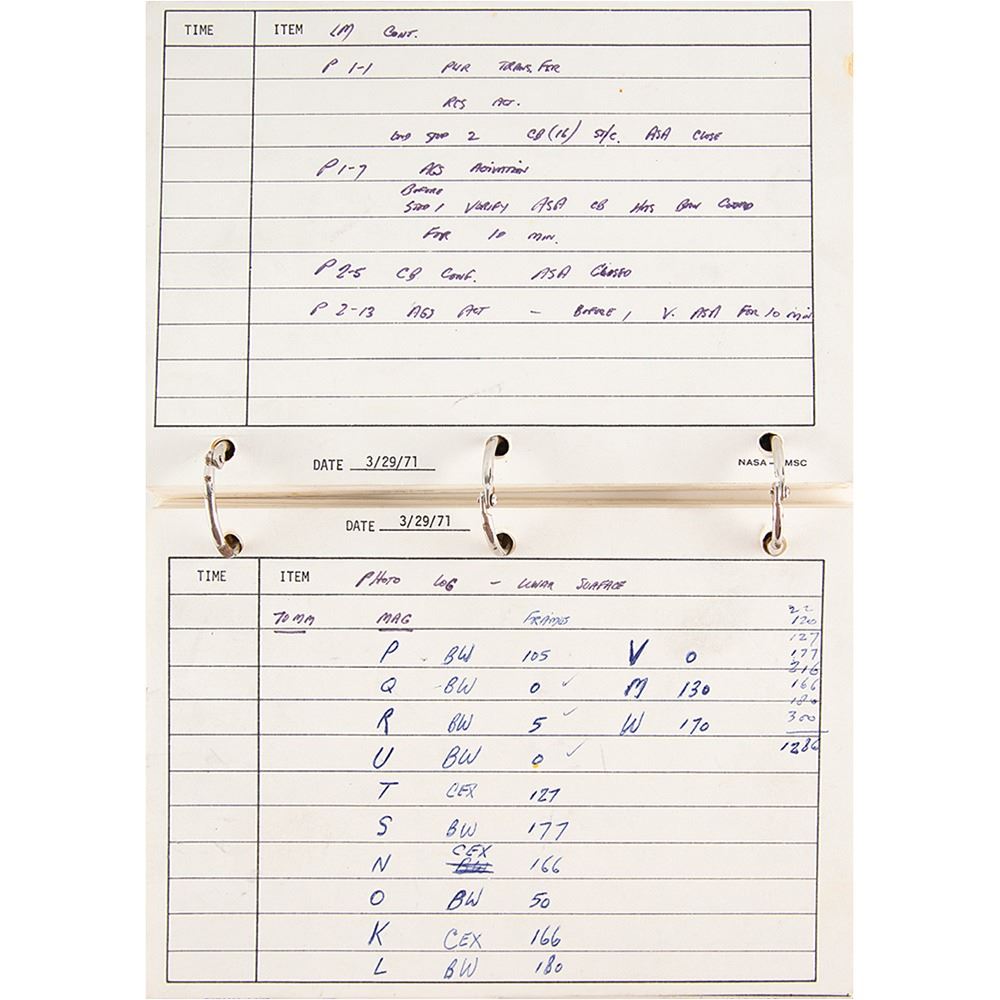 TIME ITEM LM CONT.
P 1-1 PWR TRANSFER
RCS ACT.
STEP 2 CB(16) S/C. ASA CLOSE
P 1-7 AGS ACTIVATION
BEFORE
STEP 1 VERIFY ASA CB HAS BEEN CLOSED
FOR 10 MIN.
P 2-5 CB CONF. ASA CLOSED
P 2-13 AGS ACT - BEFORE 1 V. ASA FOR 10 MIN
DATE 3/29/71
NASA - MSC
DATE 3/29/71
TIME ITEM PHOTO LOG - LUNAR SURFACE
70MM MAG FRAMES 22
120
127
P BW 105 V 0 177
216
Q BW 0 ✓ M 130 166
180
R BW 5 ✓ W 170 300
U BW 0 ✓ 1286
T CEX 127
S BW 177
CEX
N BW 166
O BW 50
K CEX 166
L BW 180